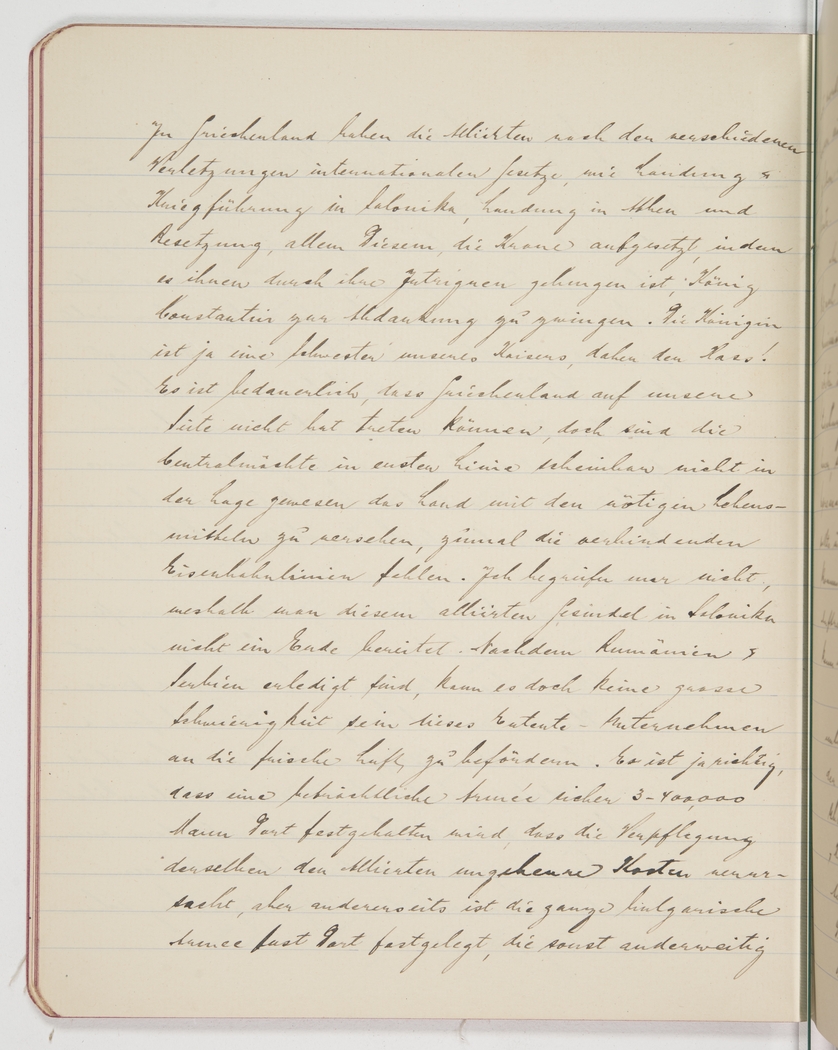 In Griechenland haben die Alliirten nach den verschiedenen
Verletzungen internationalen Gesetze, wie Landung &
Kriegführung in Salonika, Landung in Athen und
Besetzung, allem Diesem, die Krone aufgesetzt, indem
es ihnen durch ihre Intriguen gelungen ist, König
Constantin zur Abdankung zu zwingen. Die Königin
ist ja eine Schwester unseres Kaisers, daher der Hass!
Es ist bedauerlich, dass Griechenland auf unsere
Seite nicht hat treten können, doch sind die
Centralmächte in erster Linie scheinbar nicht in
der Lage gewesen das Land mit den nötigen Lebens-
mitteln zu versehen, zumal die verbindenden
Eisenbahnlinien fehlen. Ich begreife nur nicht,
weshalb man diesem alliirten Gesindel in Salonika
nicht ein Ende bereitet. Nachdem Rumänien &
Serbien erledigt sind, kann es doch keine grosse
Schwierigkeit sein dieses Entente-Unternehmen
an die frische Luft zu befördern. Es ist ja richtig,
dass eine beträchtliche Armée sicher 3-400,000
Mann Dort festgehalten wird, dass die Verpflegung
derselben den Alliirten ungeheure Kosten verur-
sacht, aber andererseits ist die ganze bulgarische
Armee fast Dort festgelegt, die sonst anderweitig